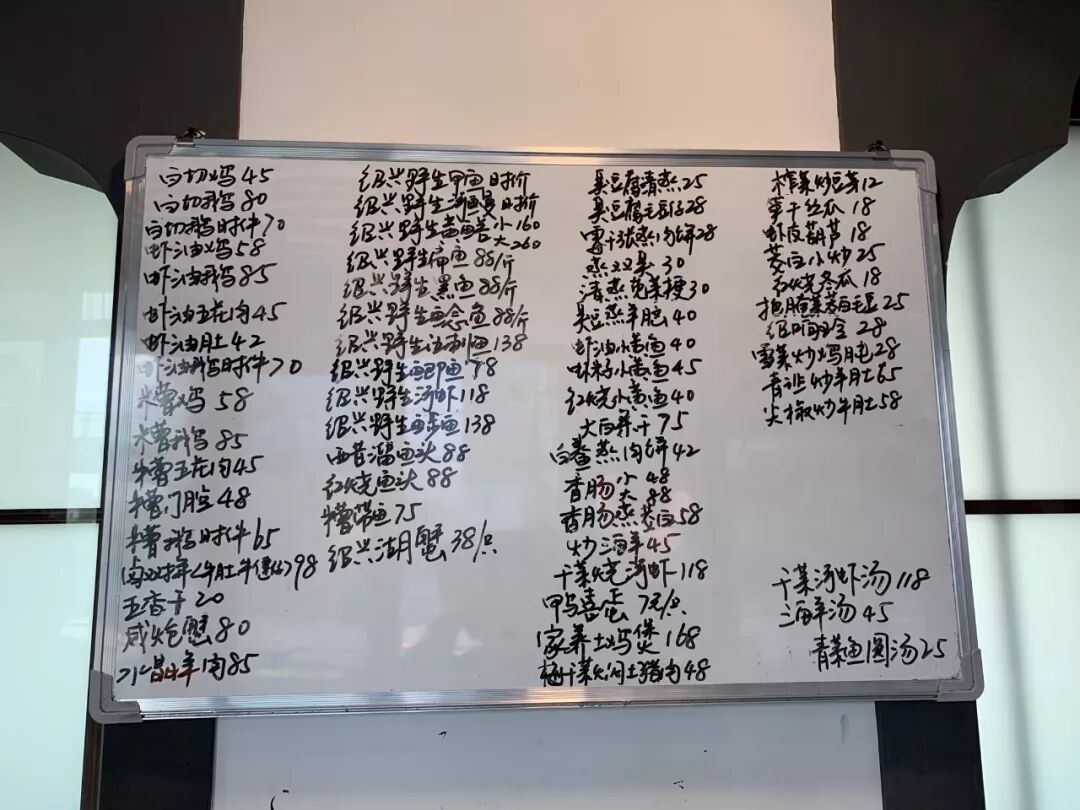 白切鸡45
白切鹅80
白切鹅时件70
虾油鸡58
虾油鹅85
虾油五花肉45
虾油肚42
虾油鹅时件70
糟鸡58
糟鹅85
糟五花肉45
糟门腔48
糟鹅时件65
卤双拼<牛肚牛健>98
五香干20
咸炝蟹80
水晶羊肉85
绍兴野生甲鱼时价
绍兴野生河鳗时价
绍兴野生黄鳝小160
大260
绍兴野生扁鱼88/斤
绍兴野生黑鱼88/斤
绍兴野生鲶鱼88/斤
绍兴野生法利鱼138
绍兴野生鲫鱼78
绍兴野生河虾118
绍兴野生 138
西昔溜鱼头88
红烧鱼头88
糟带鱼75
绍兴湖蟹38/只
臭豆腐清蒸25
臭豆腐毛豆仔28
霉千张蒸肉饼28
蒸双臭30
清蒸苋菜梗30
臭豆蒸羊脑40
虾油小黄鱼40
虾籽小黄鱼45
红烧小黄鱼40
大白弄干75
白鲞蒸肉饼42
香肠小48
大88
香肠蒸茭白58
炒三鲜45
干菜烧河虾118
鸭喜蛋7元/只
家养土鸡煲168
梅干菜焖土猪肉48
榨菜炒豆芽12
笋干丝瓜18
虾皮葫芦18
茭白小炒25
红烧冬瓜18
腌菜茭白毛豆25
28
霉菜炒鸡肫28
青瓜炒羊肚65
尖椒炒羊肚58
干菜河虾汤118
三鲜汤45
青菜鱼圆汤25